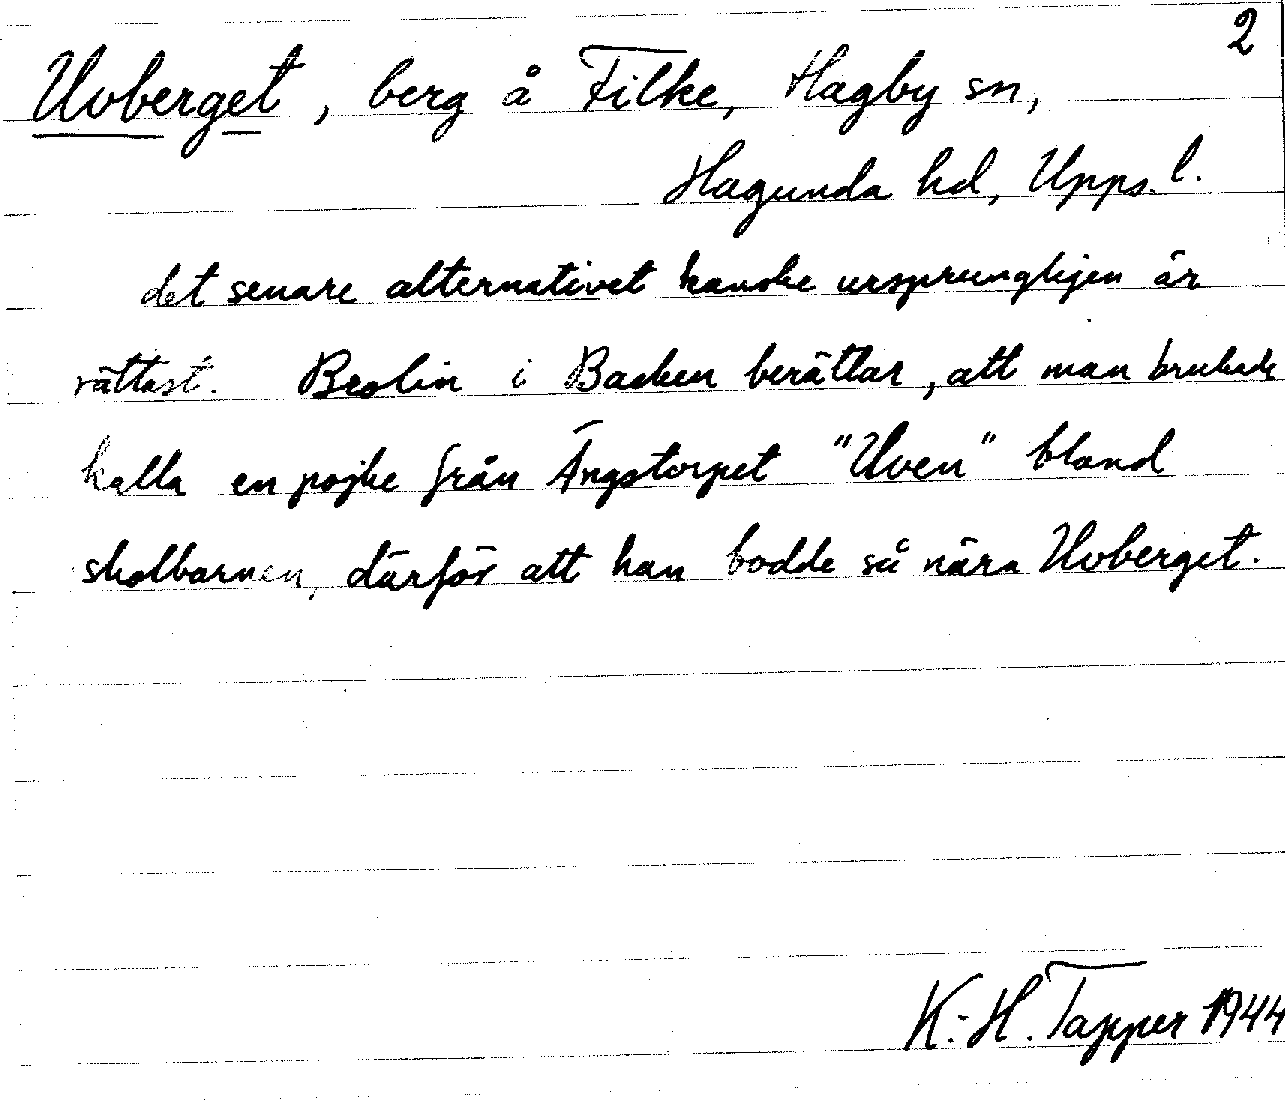 2
Uvberget, berg å Filke, Hagby sn,
Hagunda hd, Upps. l.
det senare alternativet kanske ursprungligen är
rättast. Brolin i Backen berättar, att man brukade
kalla en pojke från Ängstorpet "Uven" bland
skolbarnen, därför att han bodde så nära Uvberget.
K.-H. Tapper 1944